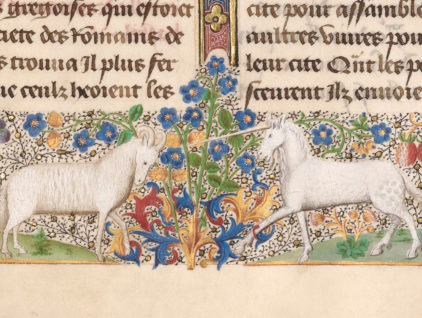 s gregoises qui estoiet
ciete des Rommains de
s trouva Il plus fer
ue ceulz heoient les
cite pour assemble
aultres vivres pou
leur cite Quit les po
sceurent Ilz envoie